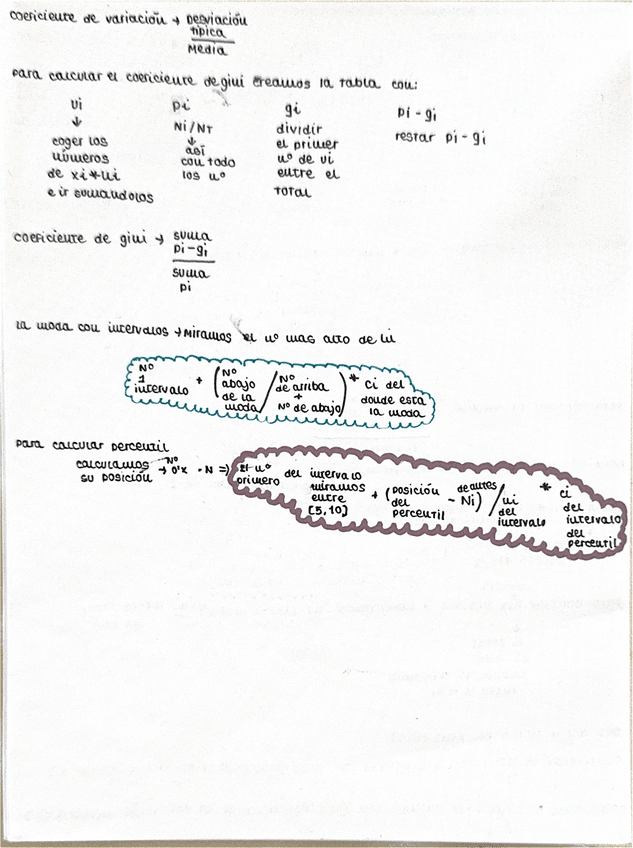 coeficiente de variación → Desviación
típica
Media
para calcular el coeficiente de gini creamos la tabla con:
vi pi gi pi - gi
↓ Ni/NT dividir restar pi - gi
coger los ↓ el primer
números así nº de vi
de xi*ni con todo entre el
e ir sumandolos los nº total
coeficiente de gini → suma
pi - gi
suma
pi
la moda con intervalos → miramos el nº mas alto de hi
Nº
1
intervalo + (Nº abajo de la moda / Nº de arriba + Nº de abajo) * Ci del donde esta la moda
para calcular percentil
calculamos su posición → Nº 0'x · N => El nº primero del intervalo miramos entre [5,10] + (posición del percentil - Ni de antes) / ni del intervalo * ci del intervalo del percentil